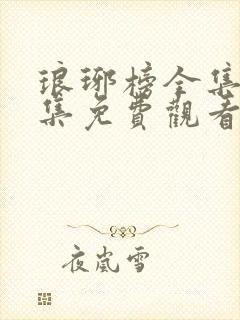 琅琊榜全集
集免費觀看
夜嵐雪